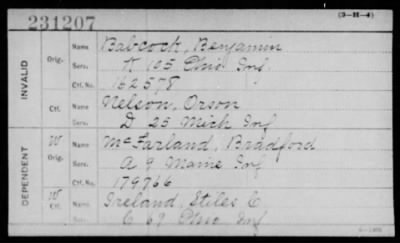 231207
(3-H-4)
INVALID
Orig.
Name Babcock, Benjamin
Serv. K 105 Ohio Inf.
Ctf. No. 162578
Ctf.
Name Nelson, Orson
Serv. D 25 Mich Inf
DEPENDENT
W
Orig.
Name McFarland, Bradford
Serv. A 9 Maine Inf
Ctf. No. 179766
W
Ctf.
Name Ireland, Stiles C
Serv. C 69 Ohio Inf